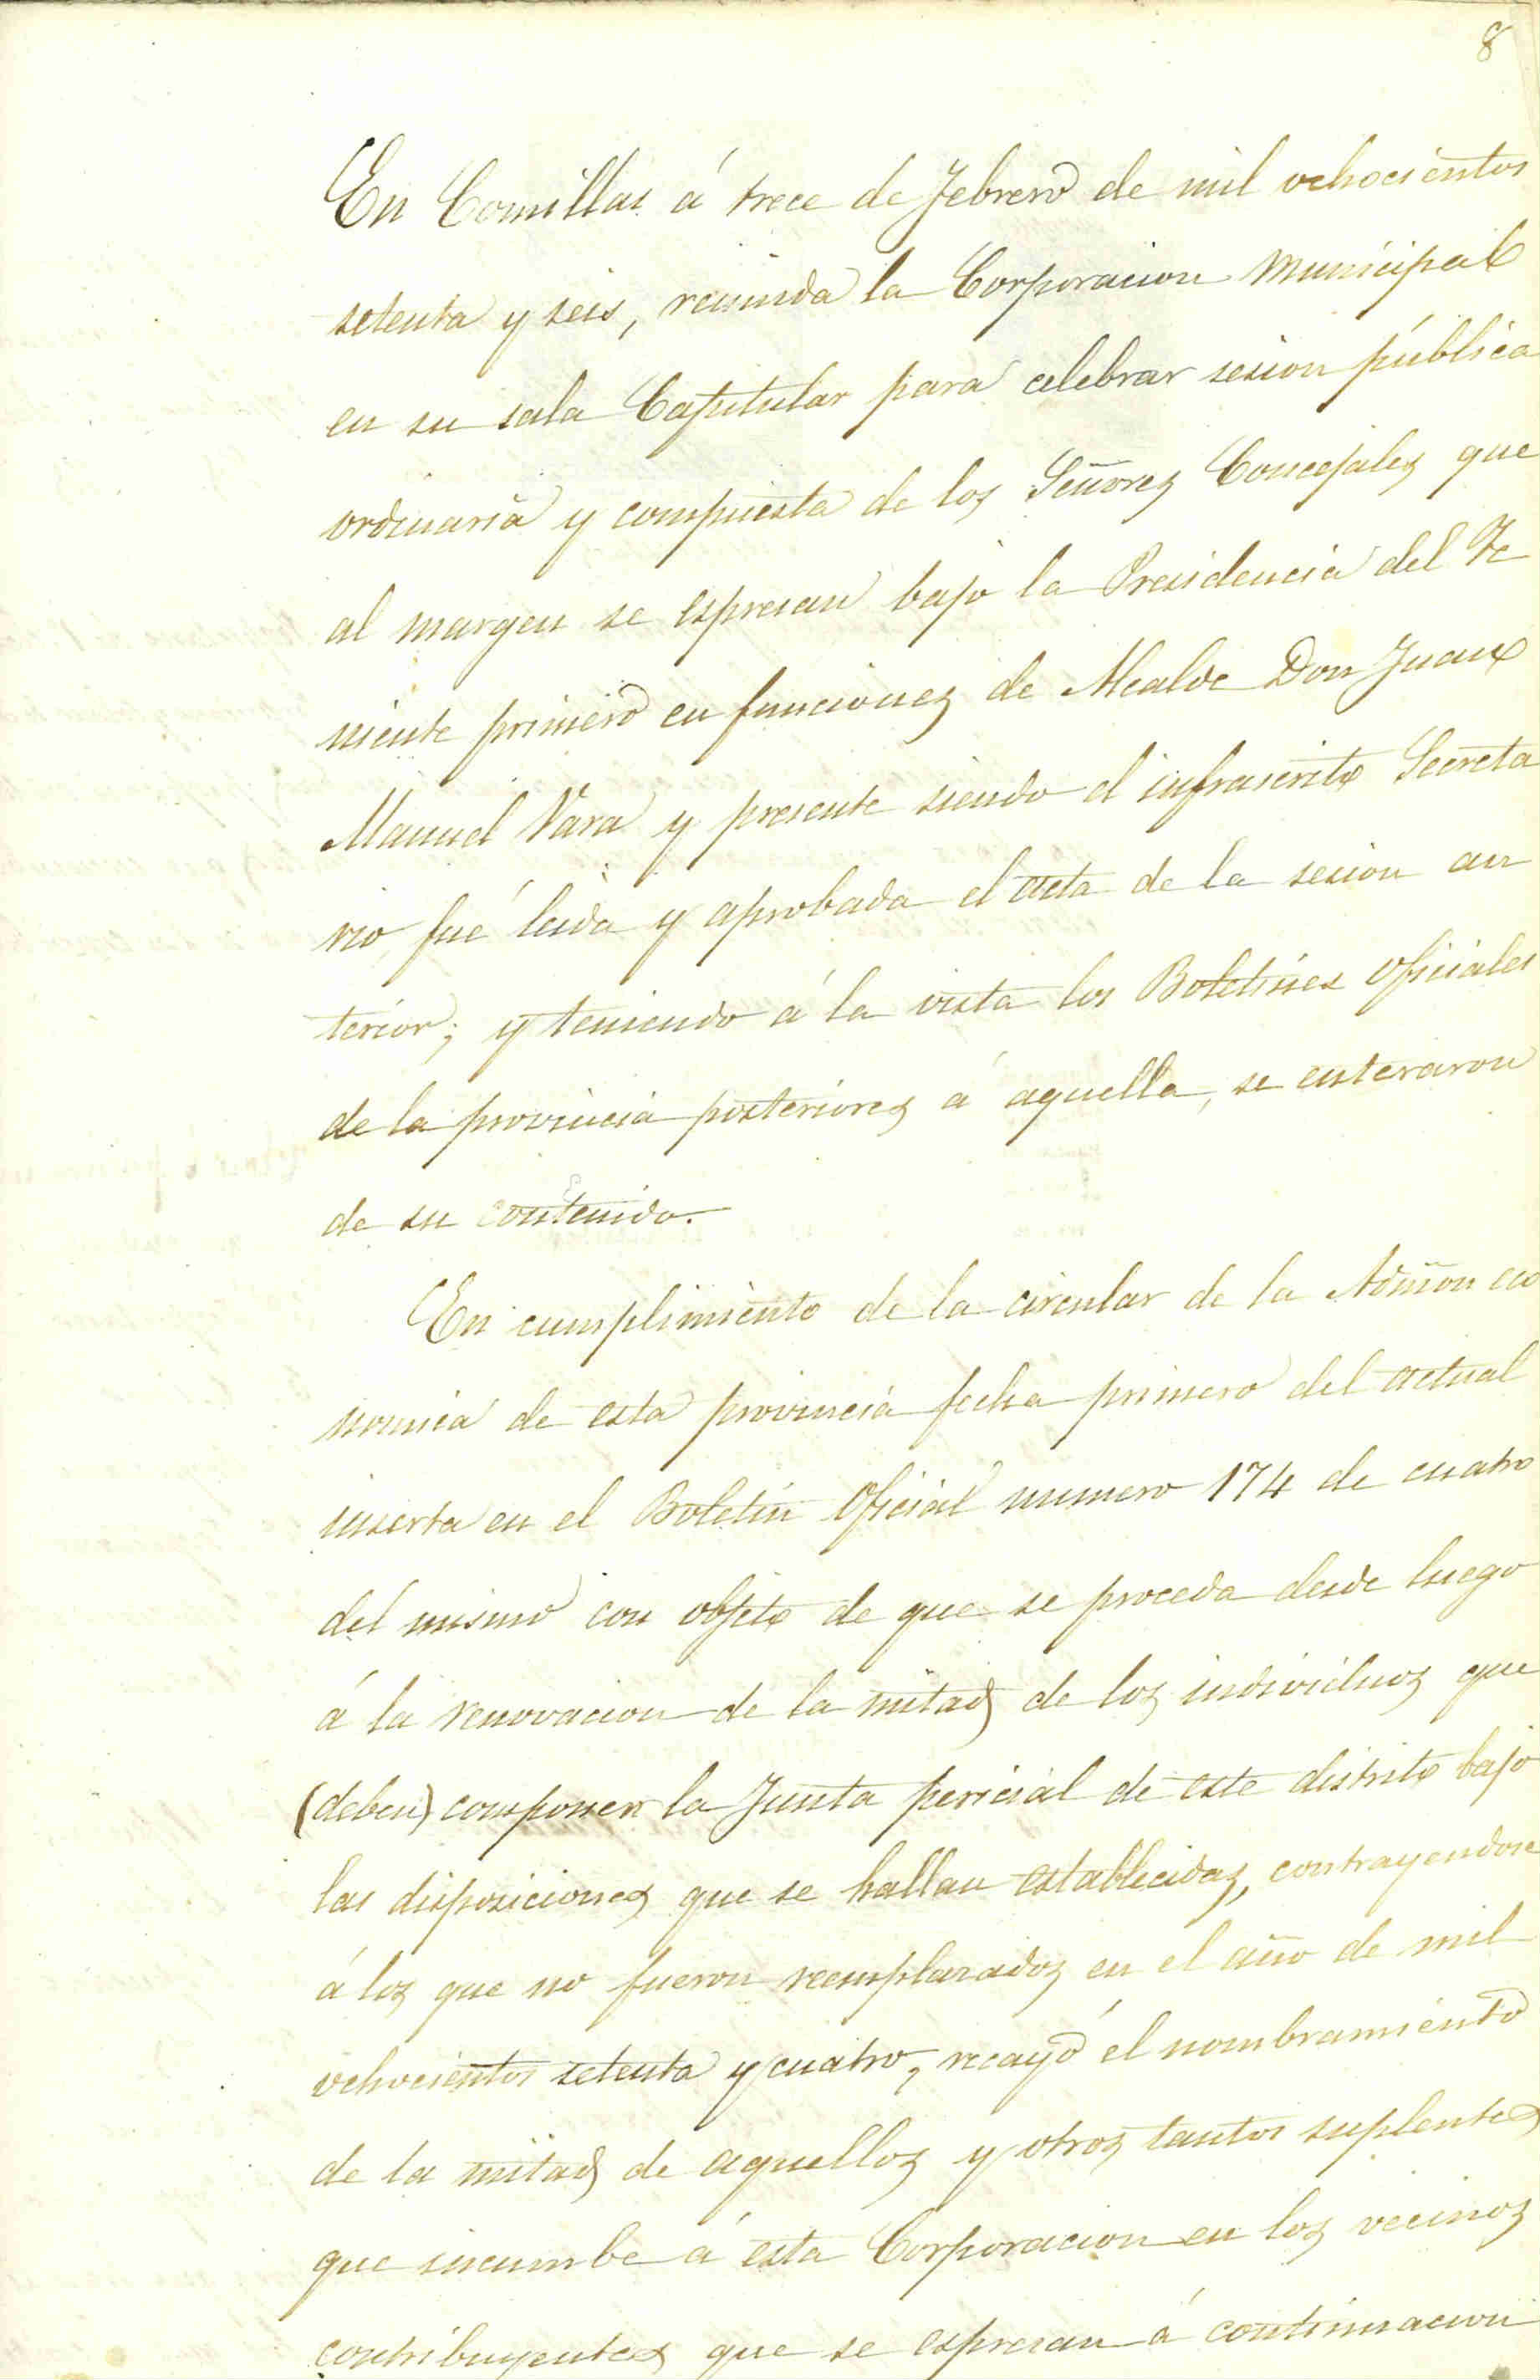 8
En Comillas á trece de Febrero de mil ochocientos
setenta y seis, reunida la Corporacion Municipal
en su sala Capitular para celebrar sesion pública
ordinaria y compuesta de los Señores Concejales que
al margen se espresan bajo la Presidencia del Te
niente primero en funciones de Alcalde Don Juan
Manuel Vara y presente siendo el infrascrito Secreta
rio fué leida y aprobada el acta de la sesion an
terior; y teniendo á la vista los Boletines oficiales
de la provincia posteriores á aquella, se enteraron
de su contenido.
En cumplimiento de la circular de la Admon eco
nomica de esta provincia fecha primero del actual
inserta en el Boletin Oficial numero 174 de cuatro
del mismo con objeto de que se proceda desde luego
á la renovacion de la mitad de los individuos que
(deben) componen la Junta pericial de este distrito bajo
las disposiciones que se hallan establecidas, contrayendose
á los que no fueron reemplazados en el año de mil
ochocientos setenta y cuatro, recayó el nombramiento
de la mitad de aquellos y otros tantos suplentes
que incumbe á esta Corporacion en los vecinos
contribuyentes que se espresan á continuacion